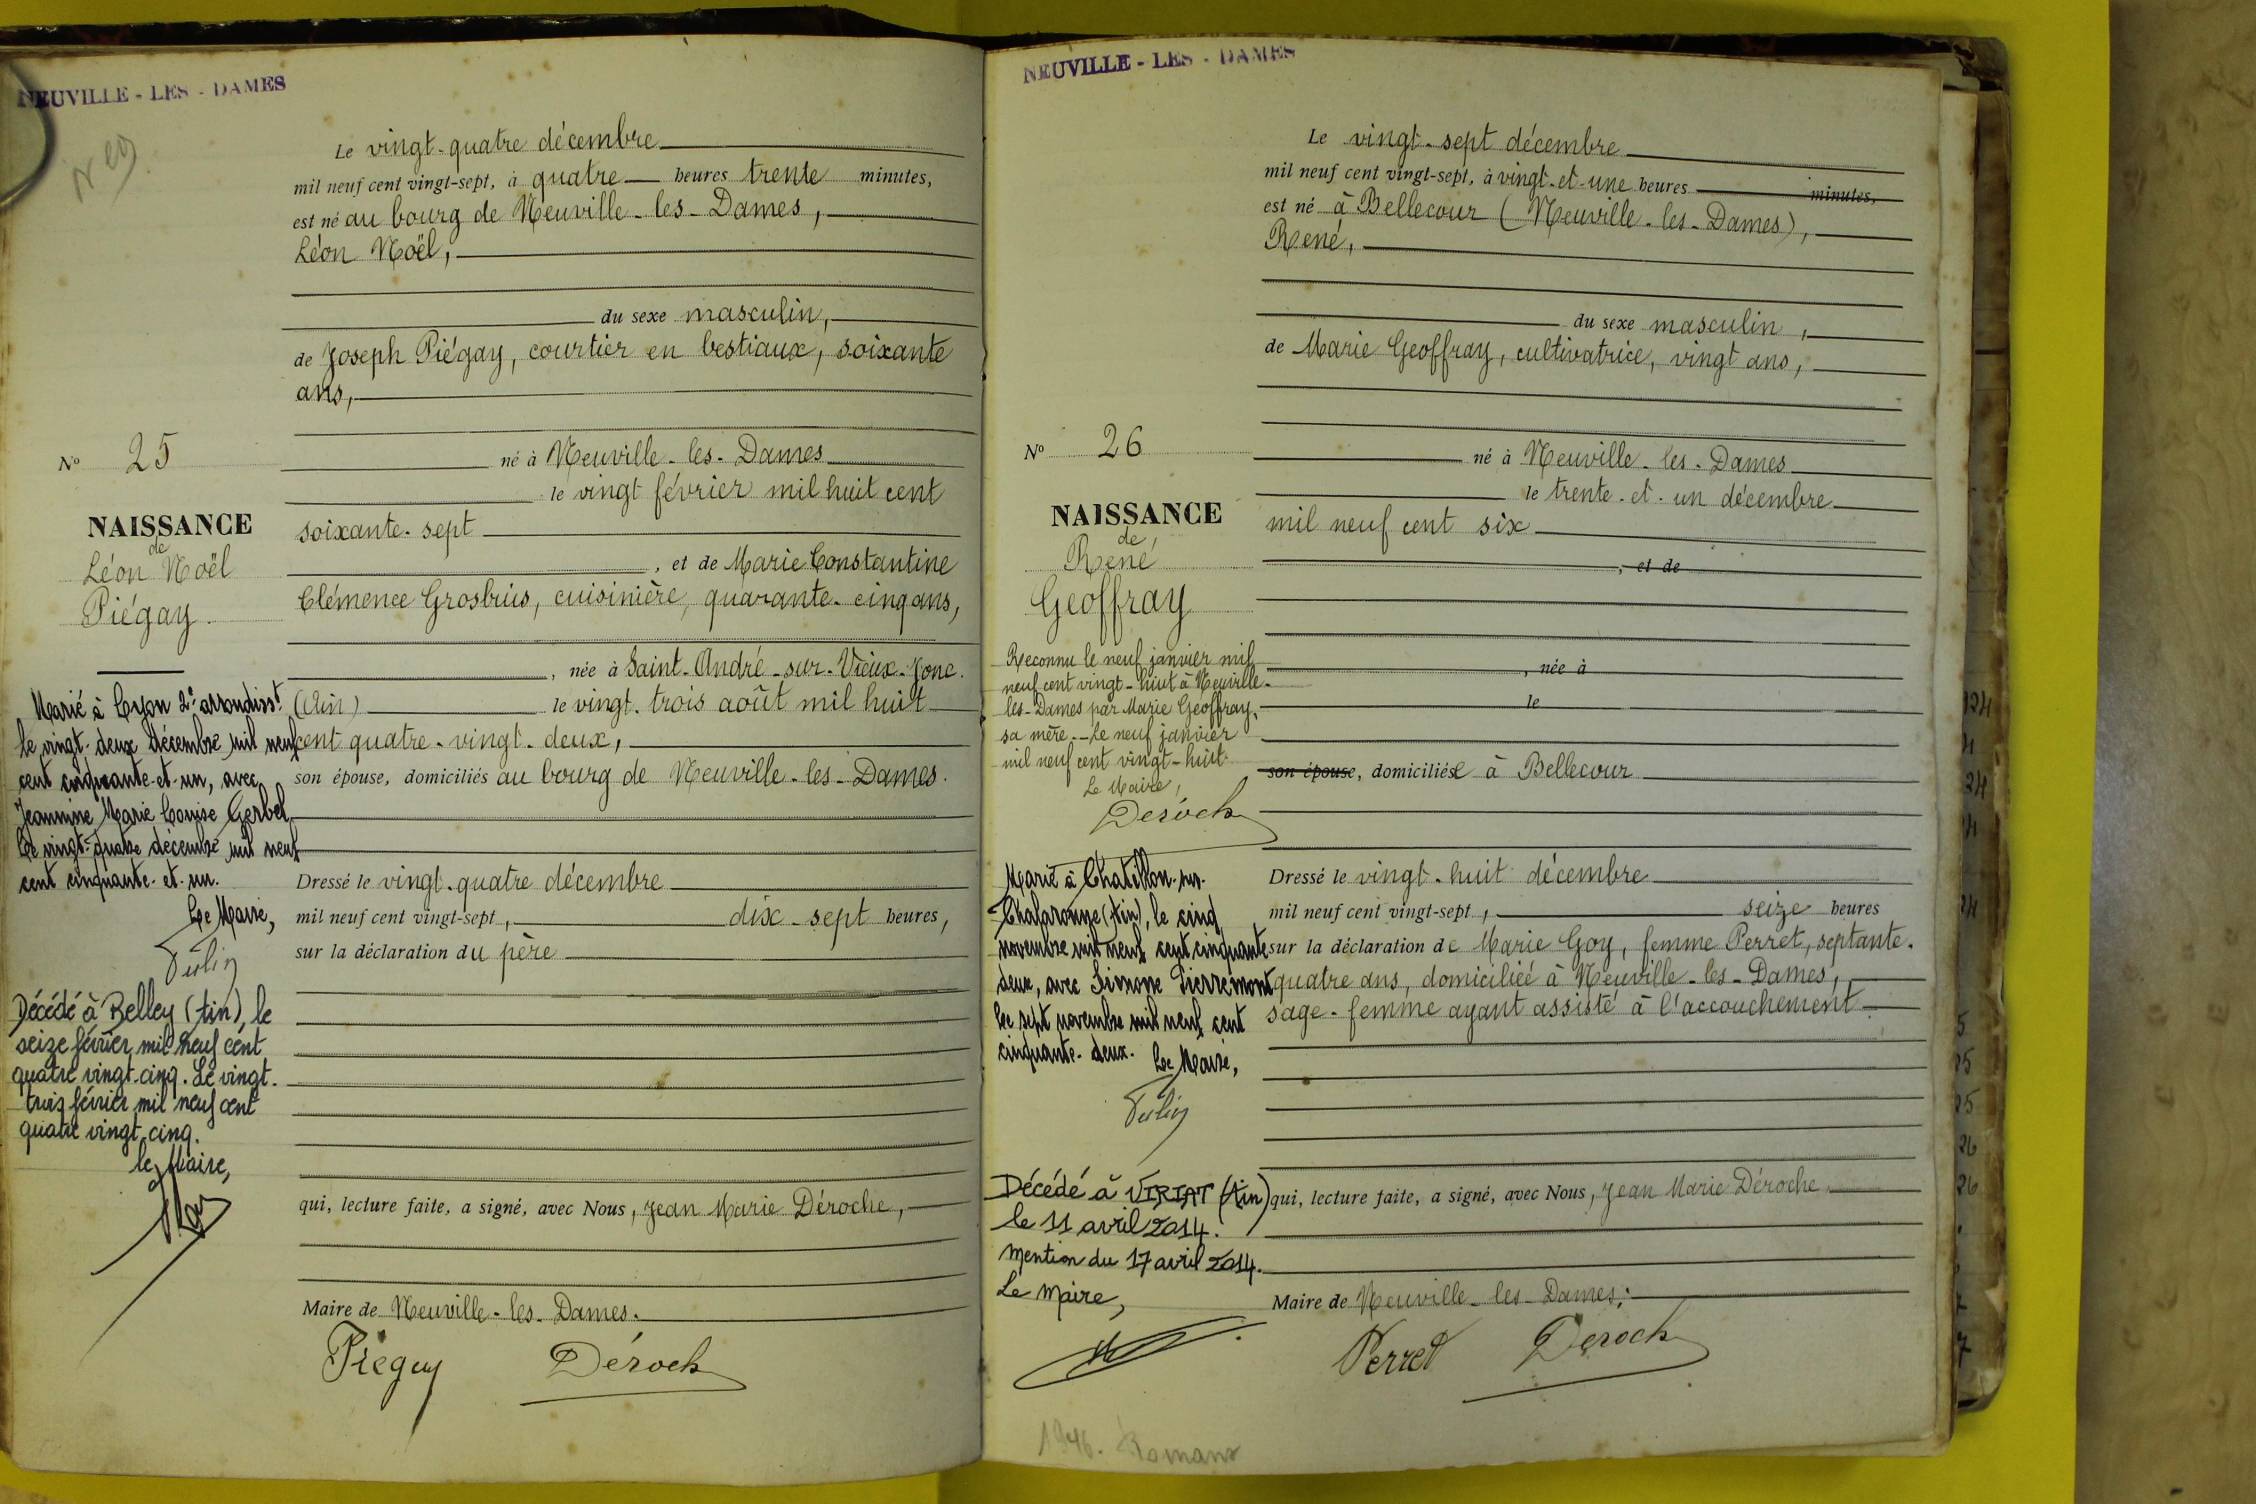 NEUVILLE - LES - DAMES
Le vingt-quatre décembre
mil neuf cent vingt-sept, à quatre heures trente minutes,
est né au bourg de Neuville-les-Dames,
Léon Noël,
du sexe masculin,
de Joseph Piégay, courtier en bestiaux, soixante
ans,
né à Neuville-les-Dames
le vingt février mil huit cent
soixante-sept
, et de Marie Constantine
Clémence Grosbuis, cuisinière, quarante-cinq ans,
, née à Saint-André-sur-Vieux-Jonc.
(Ain) le vingt-trois août mil huit
cent quatre-vingt-deux,
son épouse, domiciliés au bourg de Neuville-les-Dames.
Dressé le vingt-quatre décembre
mil neuf cent vingt-sept, dix-sept heures,
sur la déclaration du père
qui, lecture faite, a signé, avec Nous, Jean Marie Déroche,
Maire de Neuville-les-Dames.
Piégay Déroch
No 25
NAISSANCE
de
Léon Noël
Piégay.
Marié à Lyon 2e arrondisst
le vingt-deux décembre mil neuf
cent cinquante-et-un, avec
Jeannine Marie Louise Gerbel
Le vingt-quatre décembre mil neuf
cent cinquante-et-un.
Le Maire,
Décédé à Belley (Ain), le
seize février mil neuf cent
quatre vingt-cinq. Le vingt-
trois février mil neuf cent
quatre vingt-cinq.
le Maire,
NEUVILLE - LES - DAMES
Le vingt-sept décembre
mil neuf cent vingt-sept, à vingt-et-une heures minutes,
est né à Bellecour (Neuville-les-Dames),
René,
du sexe masculin,
de Marie Geoffray, cultivatrice, vingt ans,
né à Neuville-les-Dames
le trente-et-un décembre
mil neuf cent six
, et de
, née à
le
son épouse, domiciliée à Bellecour
Dressé le vingt-huit décembre
mil neuf cent vingt-sept, seize heures
sur la déclaration de Marie Goy, femme Perret, septante-
quatre ans, domiciliée à Neuville-les-Dames,
sage-femme ayant assisté à l'accouchement
qui, lecture faite, a signé, avec Nous, Jean Marie Déroche
Maire de Neuville-les-Dames.
Perret Déroch
No 26
NAISSANCE
de
René
Geoffray
Reconnu le neuf janvier mil
neuf cent vingt-huit à Neuville-
les-Dames par Marie Geoffray,
sa mère.- Le neuf janvier
mil neuf cent vingt-huit
Le Maire,
Déroch
Marié à Chatillon-sur-
Chalaronne (Ain), le cinq
novembre mil neuf cent cinquante
deux, avec Simone Pierremont
Le sept novembre mil neuf cent
cinquante-deux. Le Maire,
Décédé à VIRIAT (Ain)
le 11 avril 2014.
Mention du 17 avril 2014.
Le Maire,
1946. Romans